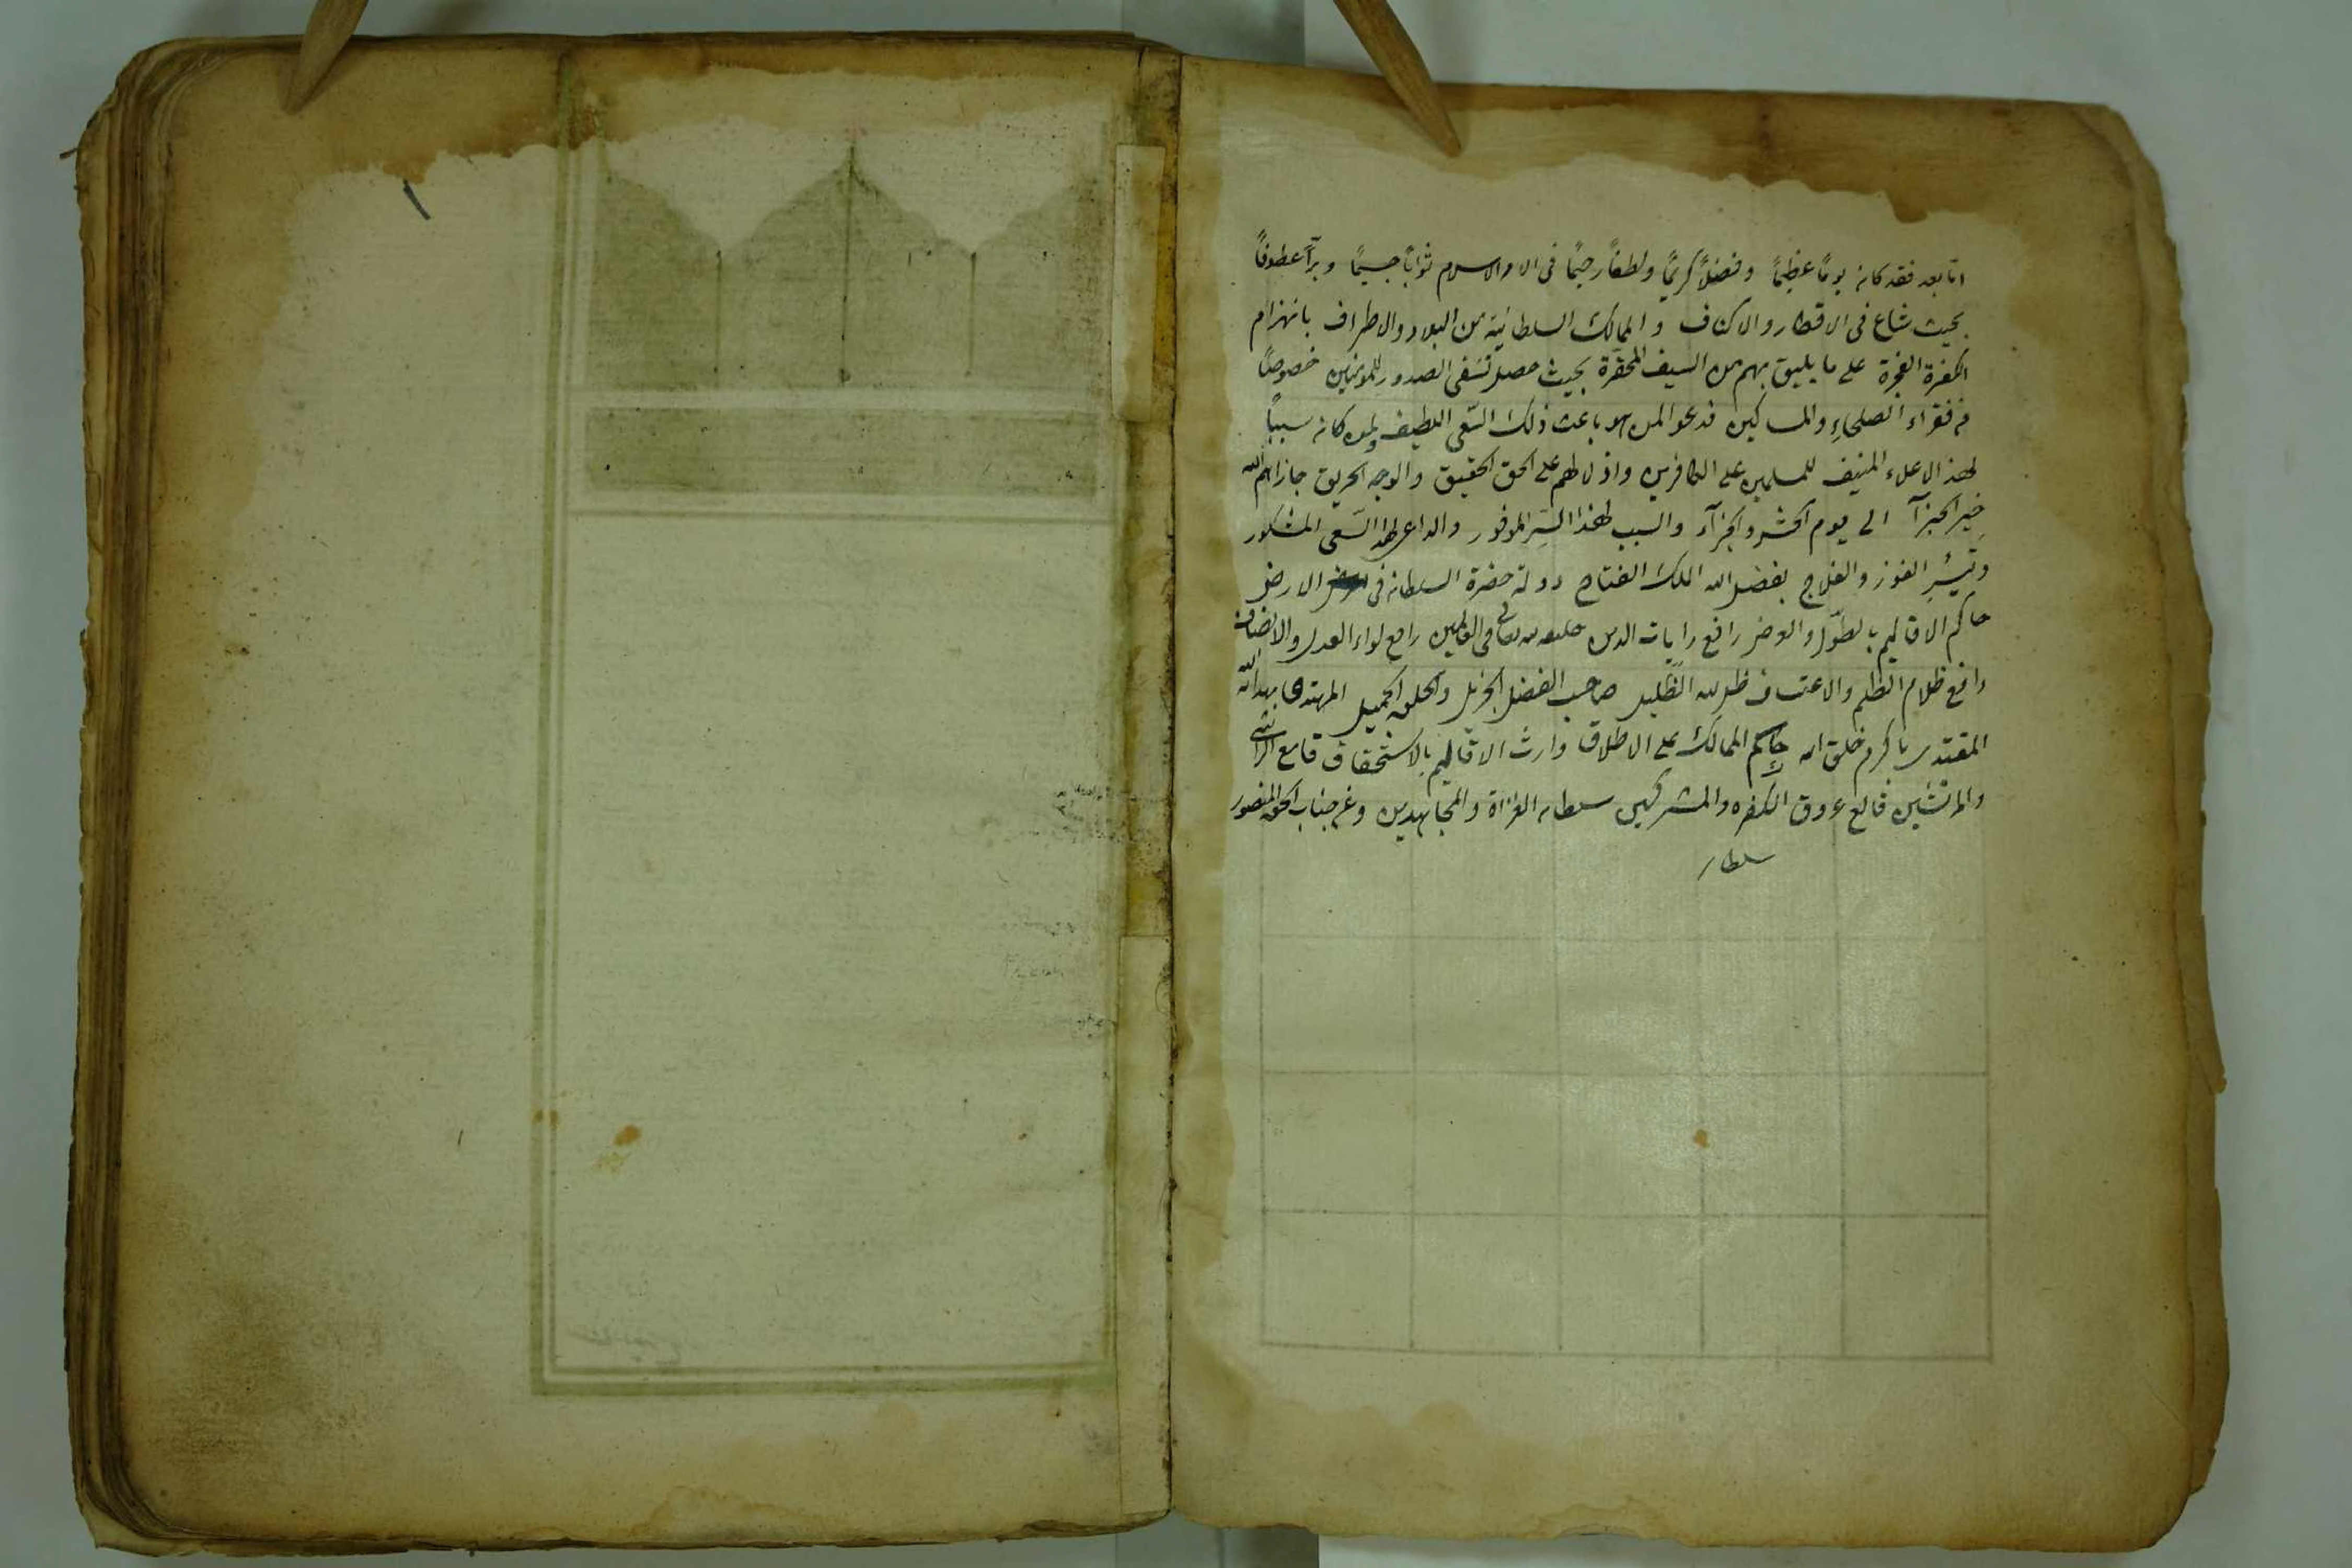 امّا بعد فقد كان يومًا عظيمًا وفضلًا كريمًا ولطفًا رحيمًا فى الاسلام ثوابًا جسيمًا وبرًّا عطوفًا
بحيث شاع فى الاقطار والاكناف والممالك السلطانية من البلاد والاطراف بانهزام
الكفرة الفجرة على ما يليق بهم من السيف المحقرة بحيث حصل تشفى الصدور للمؤمنين خصوصًا
من فقراء الصلحاء والمساكين فدعوا لمن هو باعث ذلك السّعى اللطيف ولمن كان سببًا
لهذ الاعلاء المنيف للمسلمين على الكافرين واذلالهم على الحق الحقيق والوجه الحريق جازاهم الله
خير الجزآ الى يوم الحشر والجزآء والسبب لهذا السّر الموفور والداعى لهذا السّعى المشكور
وتيسّر الفوز والفلاح بفضل الله الملك الفتاح دولة حضرة السلطان فى الارض
حاكم الاقاليم بالطّول والعرض رافع رايات الدين خليفة الله تعالى فى العالمين رافع لواء العدل والانصاف
دافع ظلام الظلم والاعتساف ظل الله الظّليل صاحب الفضل الجزيل والخلق الجميل المهتدى بهدى الله
المقتدى باكرم خلق الله حاكم الممالك على الاطلاق وارث الاقاليم بالاستحقاق قامع الراشى
والمرتشين قالع عروق الكفره والمشركين سلطان الغزاة والمجاهدين وغر جناب الحق المنصور
سلطان